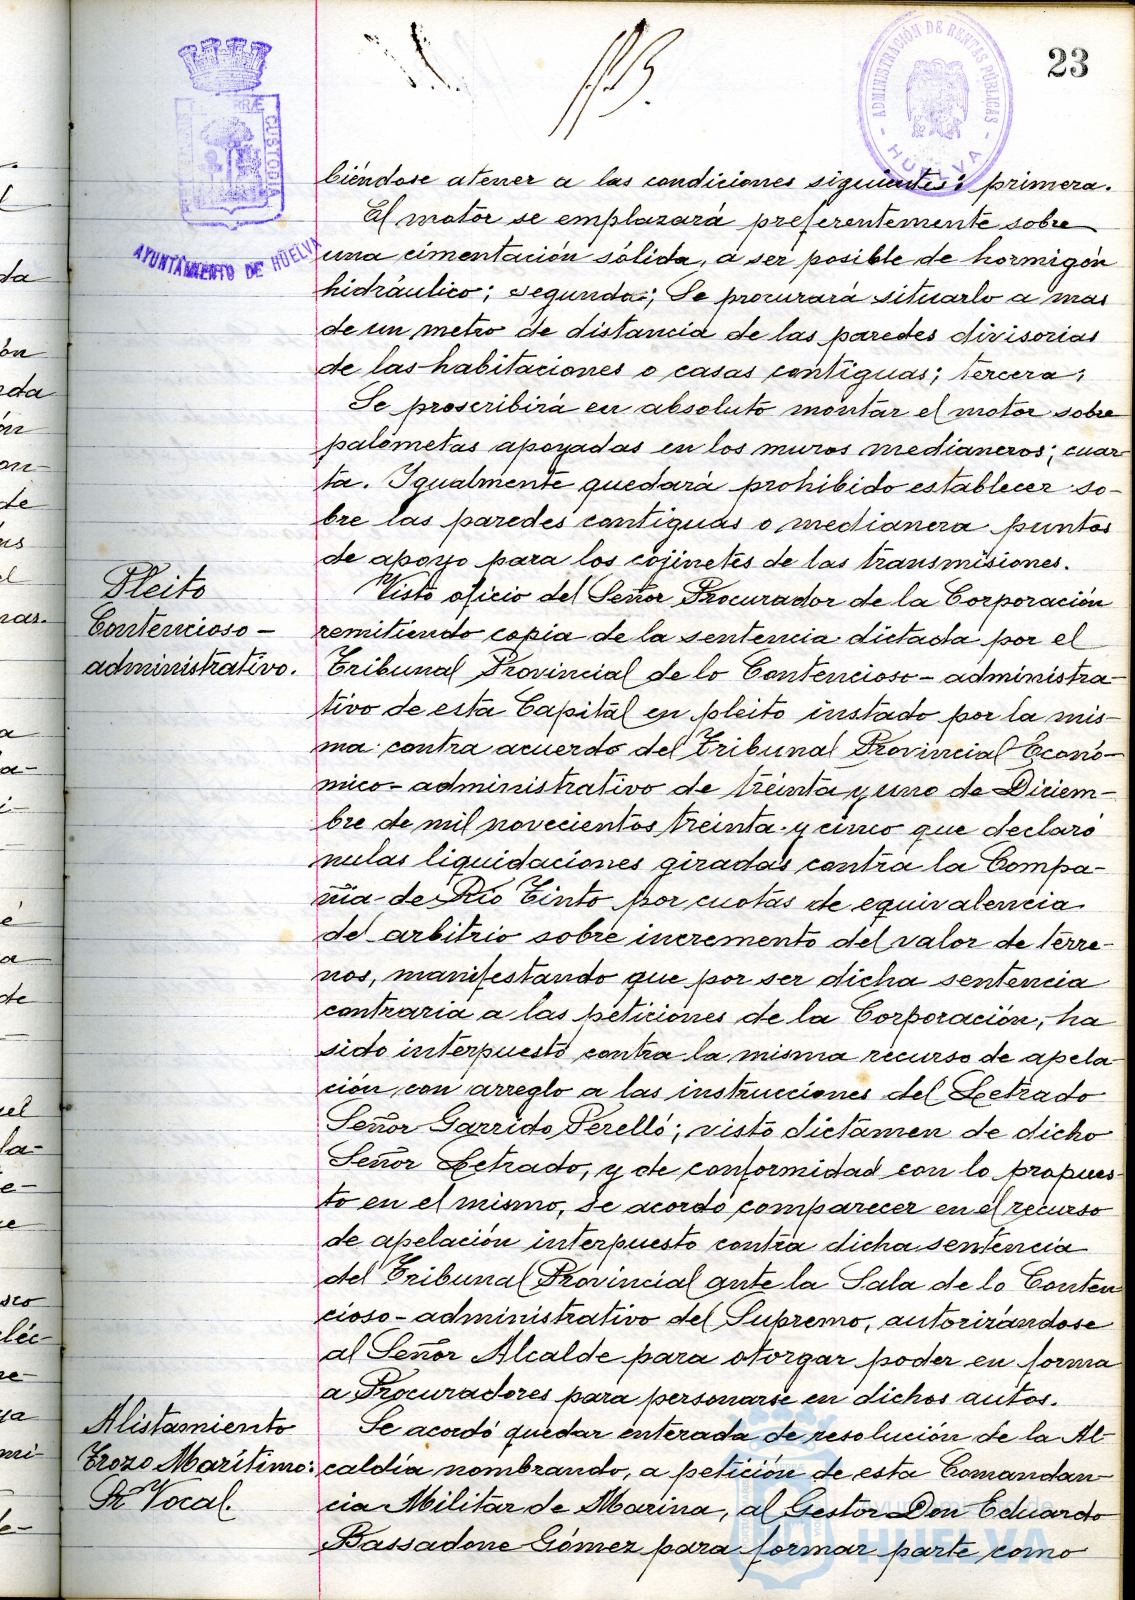 23
ADMINISTRACIÓN DE RENTAS PÚBLICAS
HUELVA
CUSTODIA
AYUNTAMIENTO DE HUELVA
biéndose atener a las condiciones siguientes: primera.
El motor se emplazará preferentemente sobre
una cimentación sólida, a ser posible de hormigón
hidráulico; segunda; Se procurará situarlo a mas
de un metro de distancia de las paredes divisorias
de las habitaciones o casas contiguas; tercera;
Se proscribirá en absoluto montar el motor sobre
palometas apoyadas en los muros medianeros; cuar-
ta. Igualmente quedará prohibido establecer so-
bre las paredes contiguas o medianera puntos
de apoyo para los cojinetes de las transmisiones.
Pleito
Contencioso-
administrativo.
Visto oficio del Señor Procurador de la Corporación
remitiendo copia de la sentencia dictada por el
Tribunal Provincial de lo Contencioso-administra-
tivo de esta Capital en pleito instado por la mis-
ma contra acuerdo del Tribunal Provincial Econó-
mico-administrativo de treinta y uno de Diciem-
bre de mil novecientos treinta y cinco que declaró
nulas liquidaciones giradas contra la Compa-
ñia de Río Tinto por cuotas de equivalencia
del arbitrio sobre incremento del valor de terre-
nos, manifestando que por ser dicha sentencia
contraria a las peticiones de la Corporación, ha
sido interpuesto contra la misma recurso de apela-
ción con arreglo a las instrucciones del Letrado
Señor Garrido Perelló; visto dictamen de dicho
Señor Letrado, y de conformidad con lo propues-
to en el mismo, se acordó comparecer en el recurso
de apelación interpuesto contra dicha sentencia
del Tribunal Provincial ante la Sala de lo Conten
cioso-administrativo del Supremo, autorizándose
al Señor Alcalde para otorgar poder en forma
a Procuradores para personarse en dichos autos.
Alistamiento
Trozo Marítimo:
Vocal.
Se acordó quedar enterada de resolución de la Al-
caldía nombrando, a petición de esta Comandan-
cia Militar de Marina, al Gestor Don Eduardo
Bassadone Gómez para formar parte como
ayuntamiento de
HUELVA